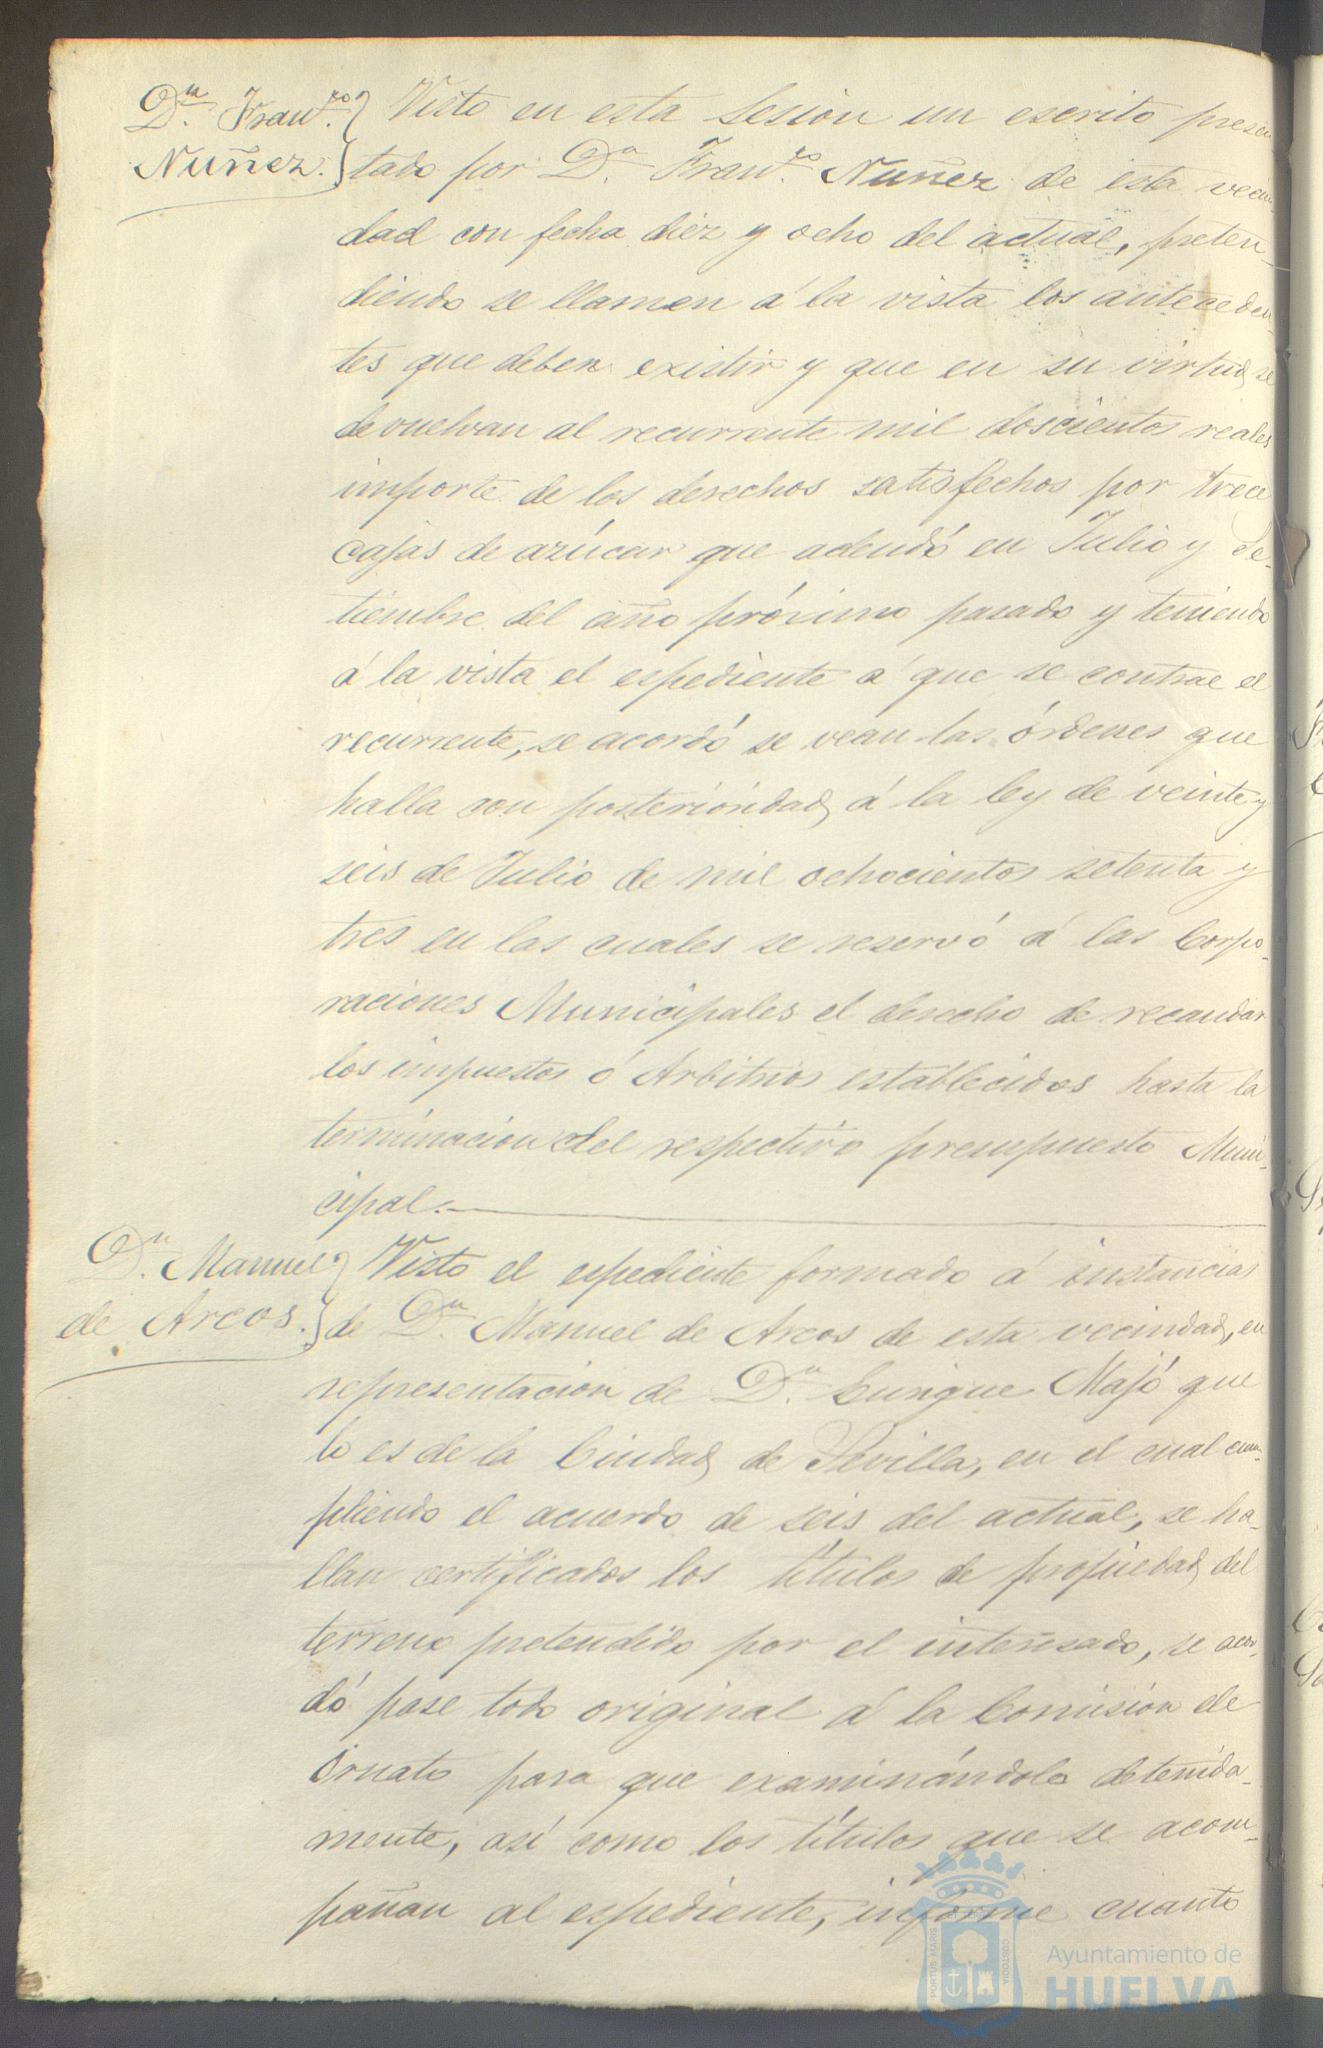 Dn. Franco.
Nuñez.
Visto en esta Sesion un escrito presen
tado por Dn. Franco. Nuñez de esta vecin-
dad con fecha diez y ocho del actual, preten-
diendo se llamen á la vista los anteceden-
tes que deben existir y que en su virtud se
devuelvan al recurrente mil doscientos reales
importe de los derechos satisfechos por trece
cajas de azúcar que adeudó en Julio y Se-
tiembre del año próximo pasado y teniendo
á la vista el espediente á que se contrae el
recurrente, se acordó se vean las órdenes que
halla con posterioridad á la ley de veinte y
seis de Julio de mil ochocientos setenta y
tres en las cuales se reservó á las Corpo-
raciones Municipales el derecho de recaudar
los impuestos ó Arbitrios establecidos hasta la
terminacion del respectivo presupuesto Muni-
cipal.
Dn. Manuel
de Arcos.
Visto el espediente formado á instancias
de Dn. Manuel de Arcos de esta vecindad, en
representacion de Dn. Enrique Majó que
lo es de la Ciudad de Sevilla, en el cual cum-
pliendo el acuerdo de seis del actual, se ha-
llan certificados los títulos de propiedad del
terreno pretendido por el interesado, se acor-
dó pase todo original á la Comision de
Ornato para que examinándolo detenida-
mente, así como los títulos que se acom-
pañan al espediente, informe cuanto
PORTUS MARIS
CUSTODIA
Ayuntamiento de
HUELVA